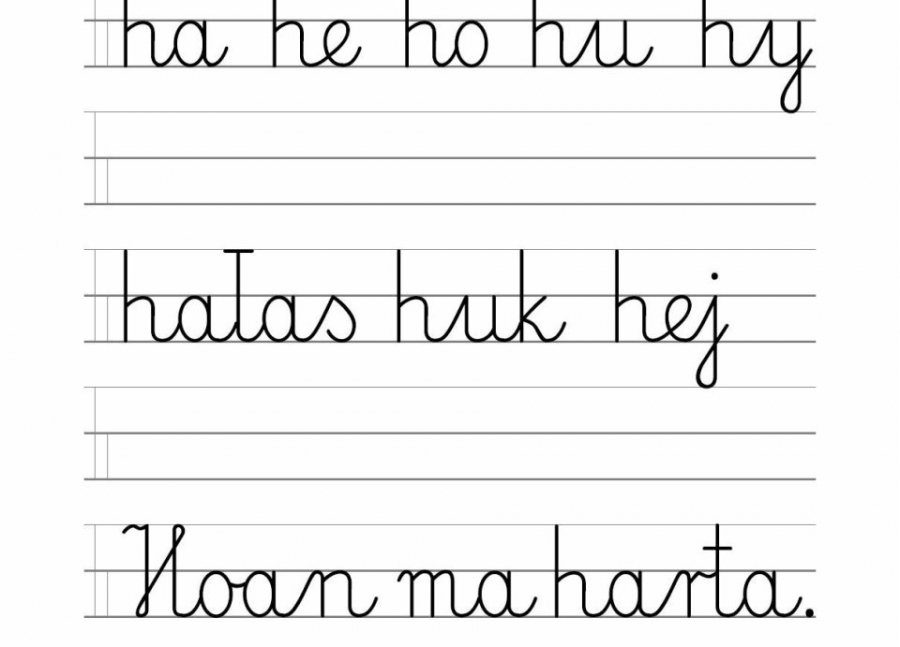 ha he ho hu hy
hałas huk hej
Hoan ma harta.